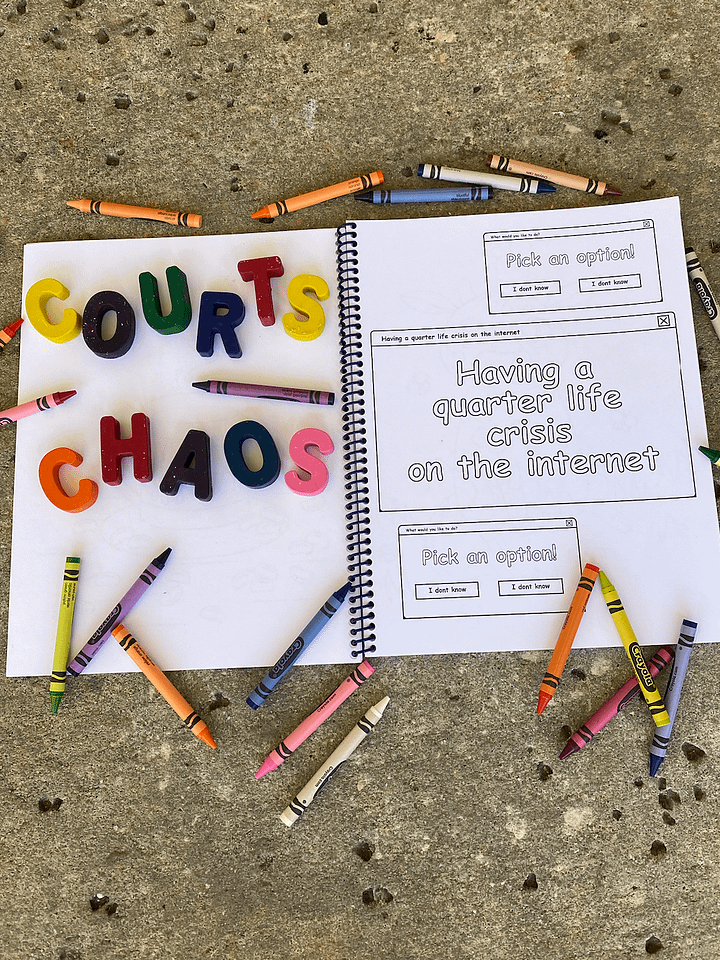 COURTS
CHAOS
What would you like to do?
Pick an option!
I dont know
I dont know
Having a quarter life crisis on the internet
Having a
quarter life
crisis
on the internet
What would you like to do?
Pick an option!
I dont know
I dont know
Crayola
Crayola
Crayola
Crayola